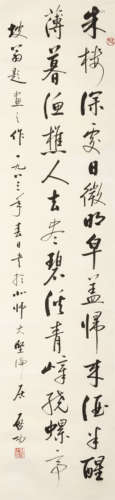 朱楼深处日微明皂盖归来酒半醒
薄暮渔樵人去尽碧溪青嶂绕螺亭
坡翁题画之作一九八三年春日书于小乘巷 启功